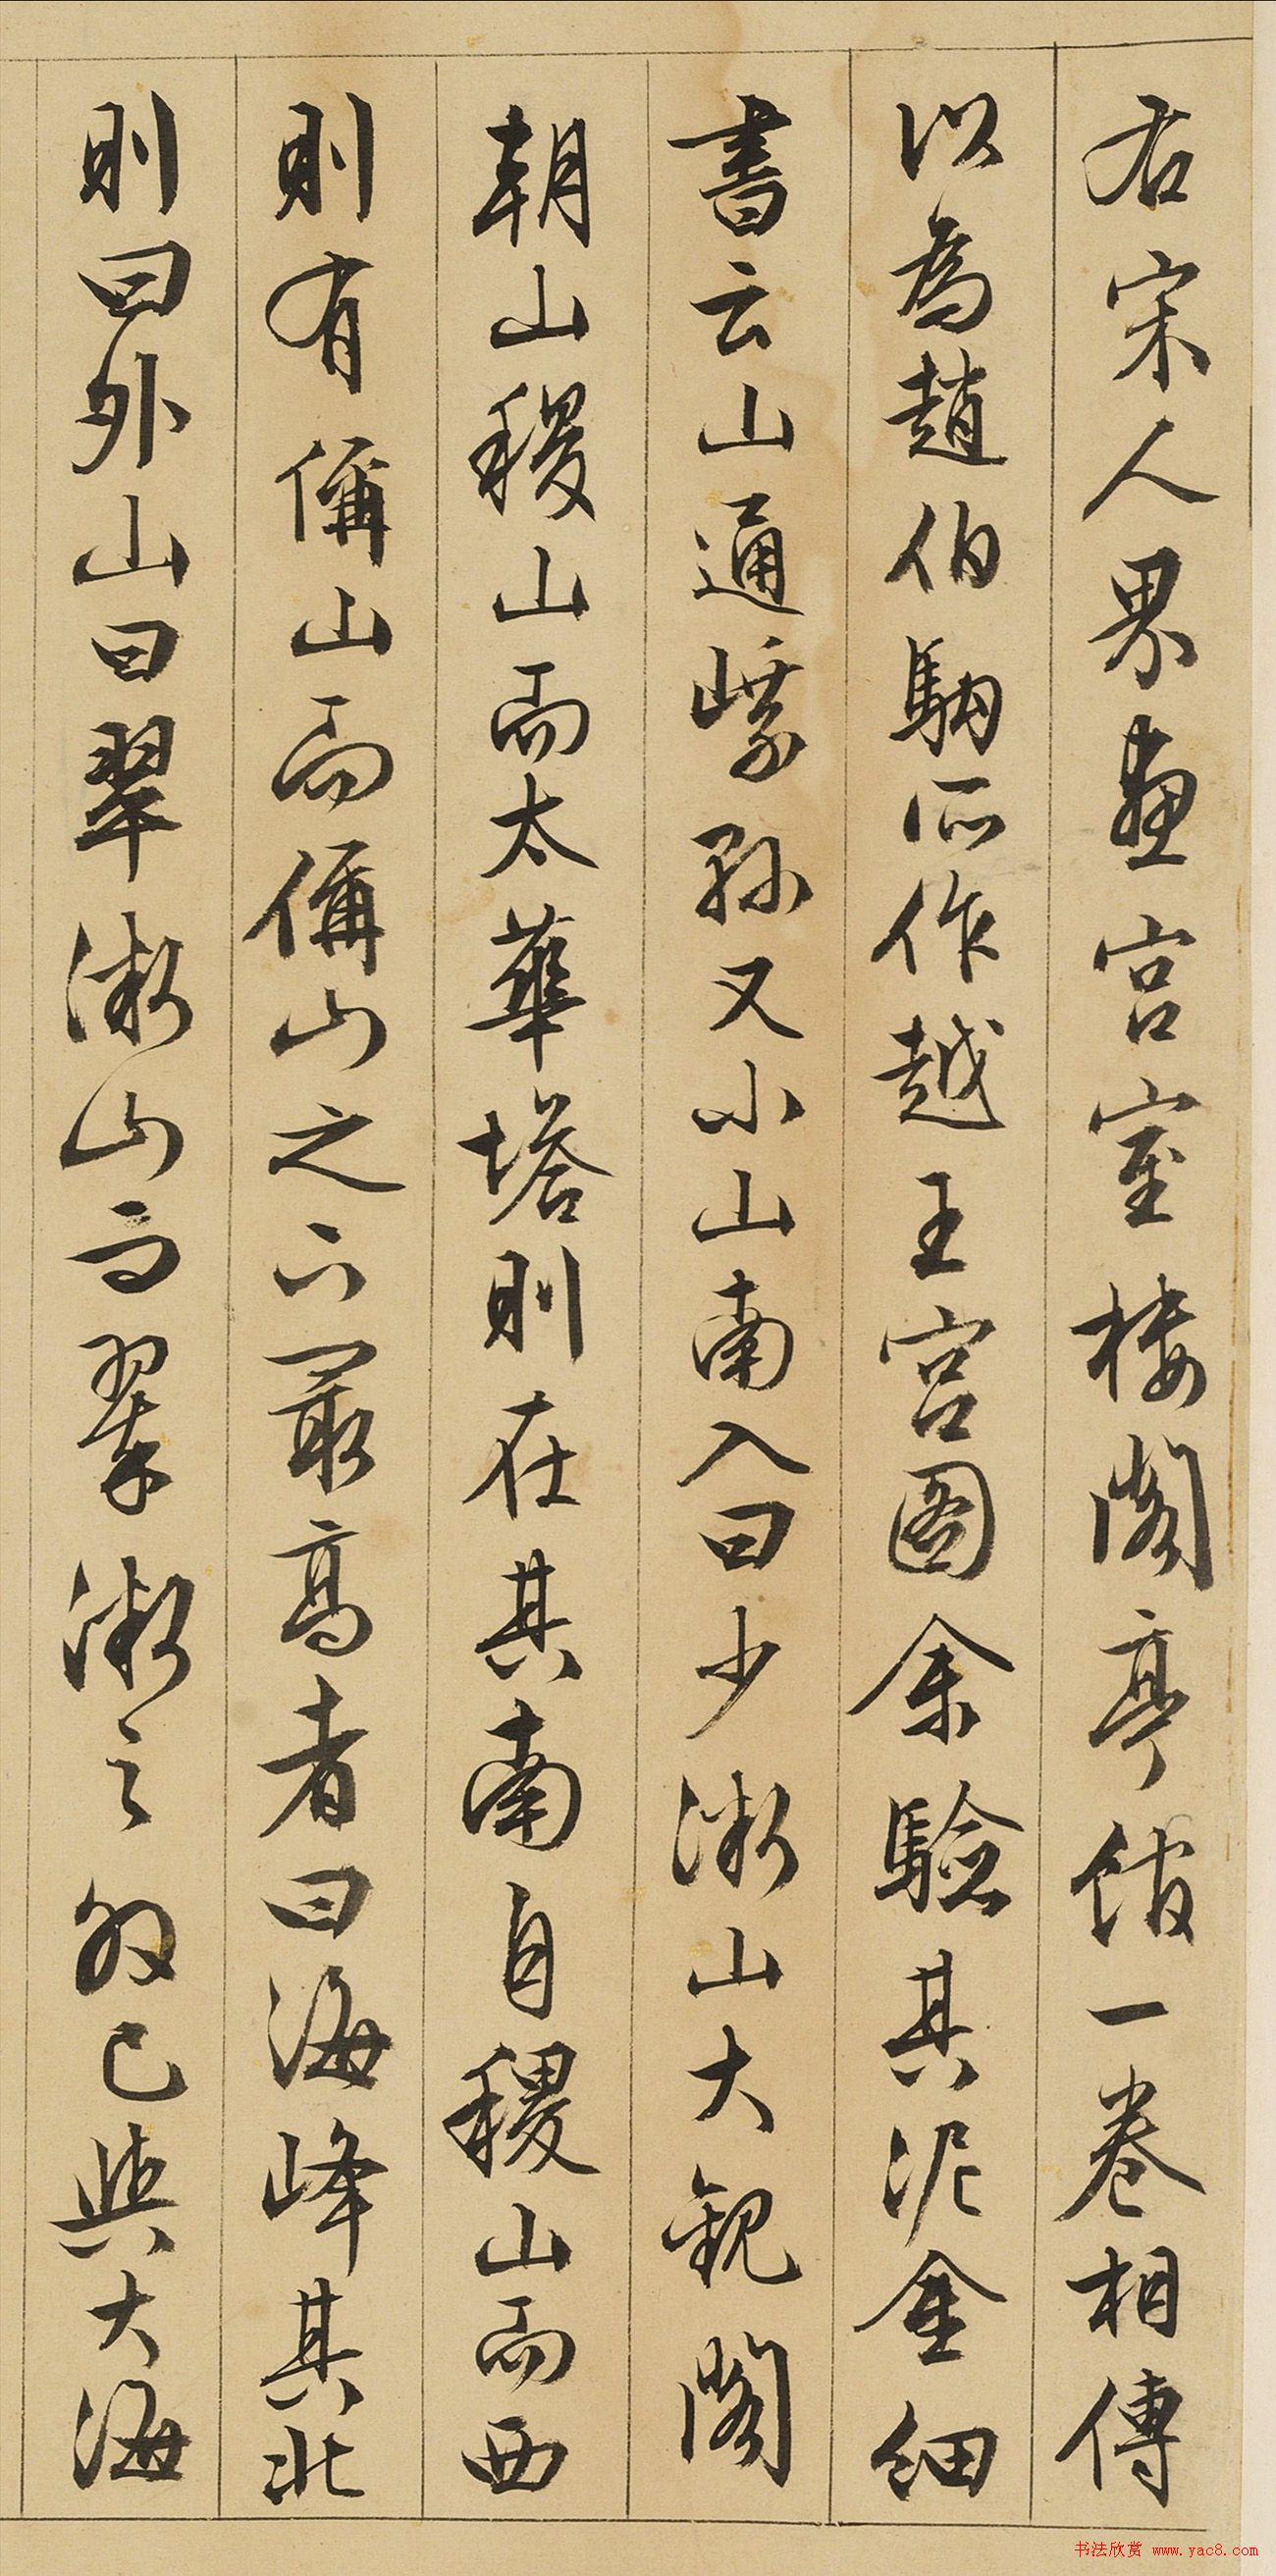 右宋人界畫宮室樓閣亭館一卷相傳
以為趙伯駒所作越王宮圖余驗其泥金細
書云山通峨孫又小山南入曰少漵山大觀閣
朝山稷山而太華塔則在其南自稷山而西
則有偁山而偁山之下最高者曰海峰其北
則曰外山曰翠漵山而翠漵之外已與大海
书法欣赏 www.yac8.com